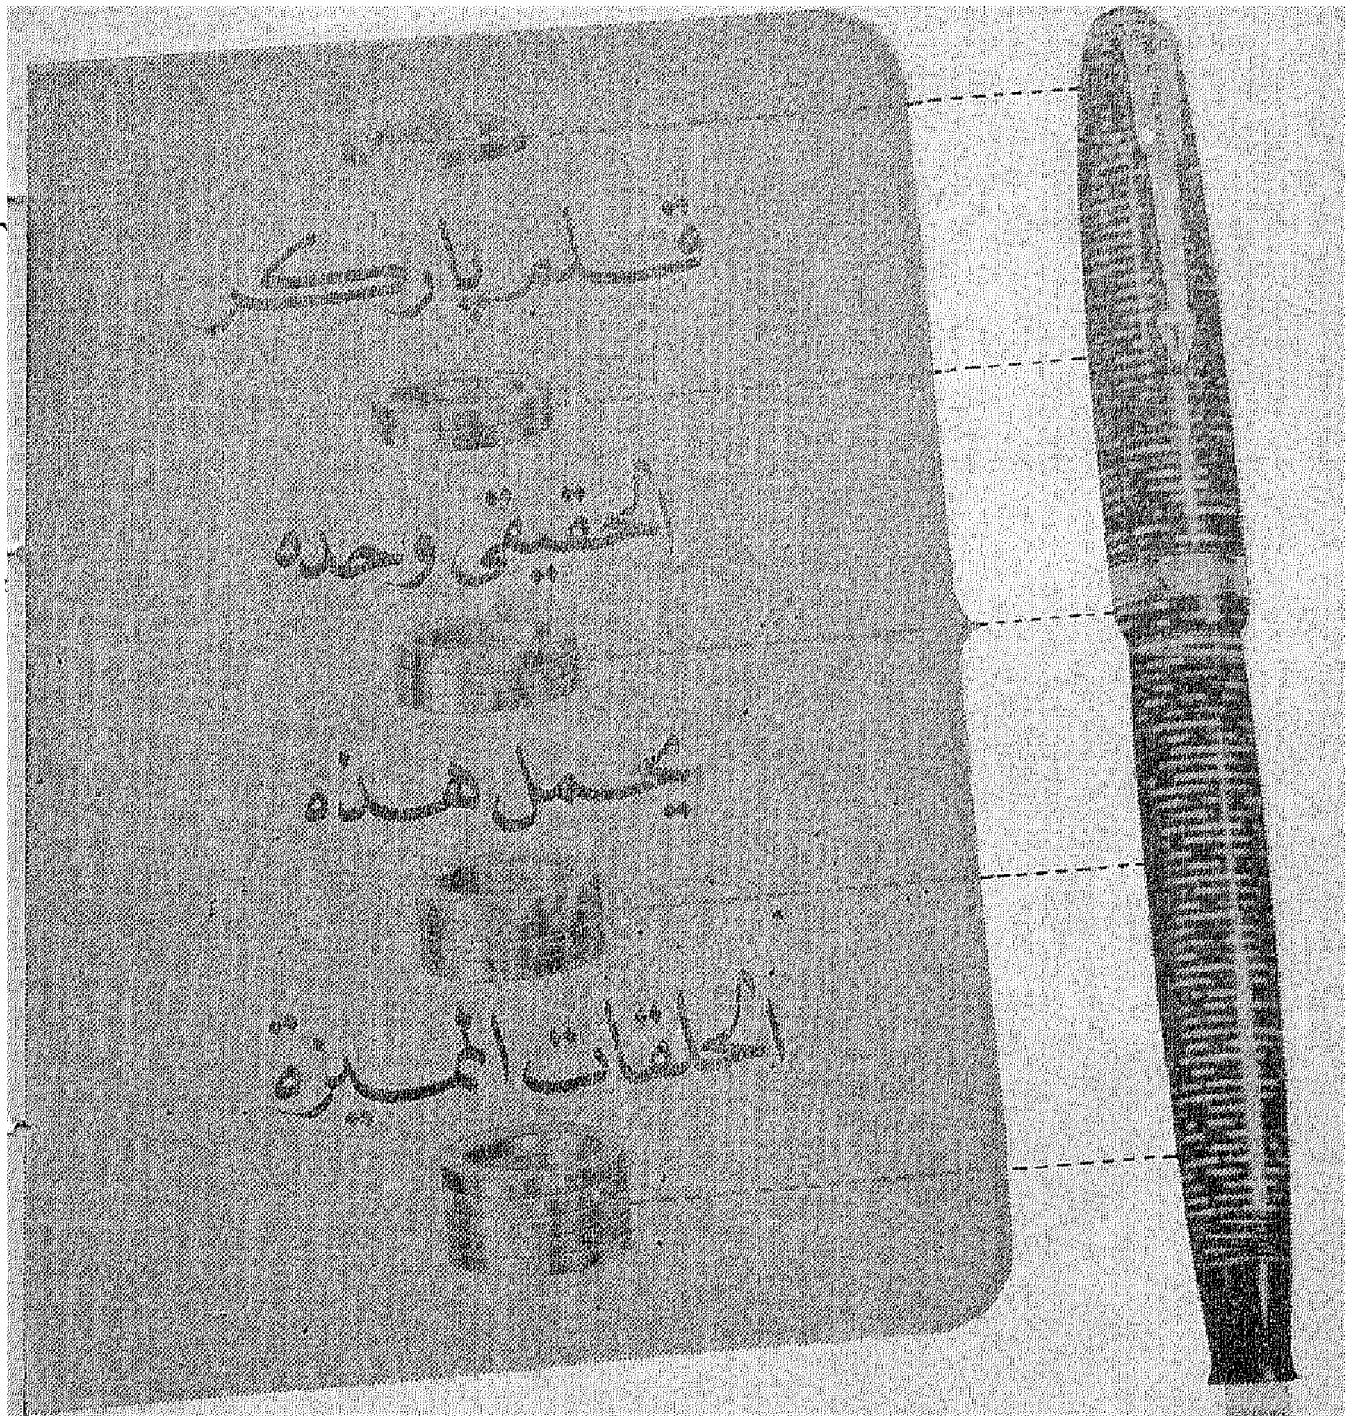 قلم باركر
الحقيقى وحده
يحمل هذه
الحلقات المميزة